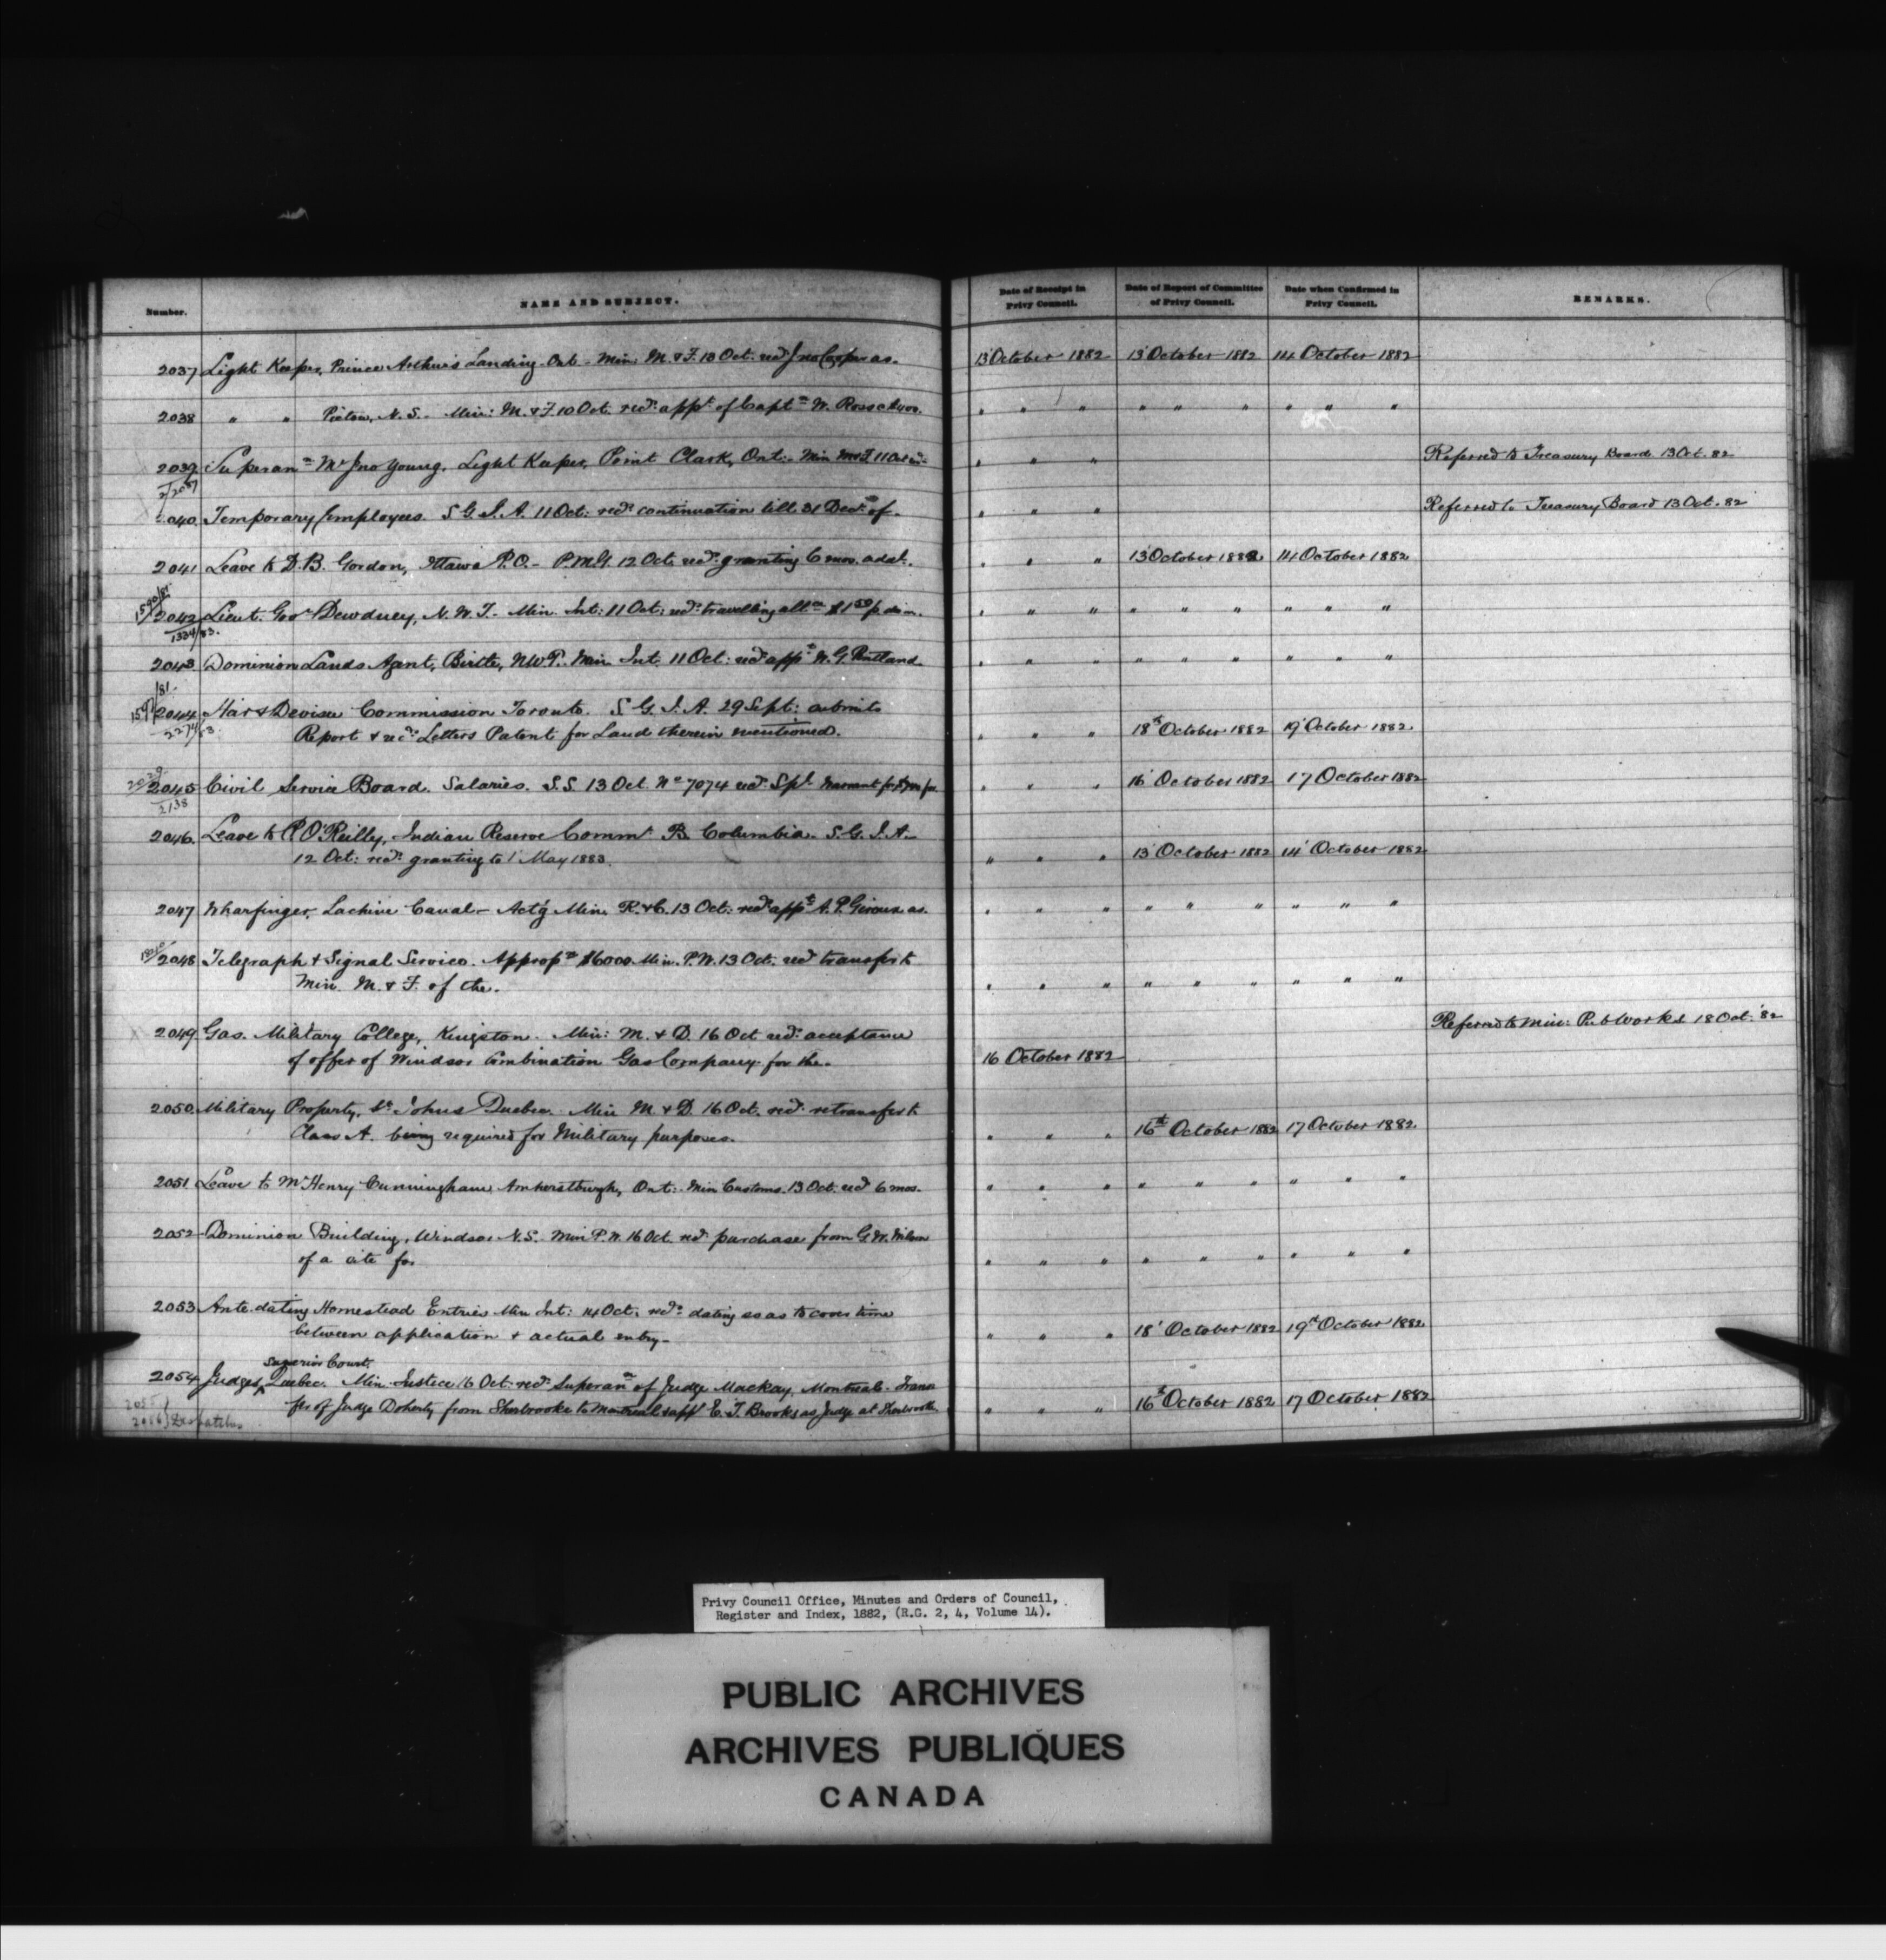 Number. NAME AND SUBJECT. Date of Receipt in Privy Council. Date of Report of Committee of Privy Council. Date when Confirmed in Privy Council. REMARKS.
2037 Light Keeper, Prince Arthur's Landing Ont - Min: M. & F. 13 Oct: recd. Jno Cooper as. 13 October 1882 13 October 1882 14 October 1882
2038 " " Pictou, N.S. - Min: M. & F. 10 Oct. recd. appt. of Captn. W. Ross " " " " " " " " "
2039 Superann. Mr Jno Young, Light Keeper, Point Clark, Ont: Min M & F 11 Oct " " " Referred to Treasury Board 13 Oct. 82
2040 Temporary Employees. S.G.I.A. 11 Oct: recd. continuation till 31 Decr. of. " " " Referred to Treasury Board 13 Oct. 82
2041 Leave to D.B. Gordon, Ottawa P.O. - P.M.G. 12 Oct. recd. granting 6 mos. adal. " " " 13 October 1882 14 October 1882
2042 Lieut. Govr. Dewdney, N.W.T. - Min. Int: 11 Oct: recd. travelling " " " " " " " " "
1334/83.
2043 Dominion Lands Agent, Birtle, N.W.T. Min Int 11 Oct: recd. appt. W.G. Pentland. " " " " " " " " "
/81.
2044 Heir & Devisee Commission Toronto. S.G.I.A. 29 Sept: submits
2274/83. Report & recds. Letters Patent for Land therein mentioned. " " " 18th October 1882 19 October 1882
2045 Civil Service Board. Salaries. S.S. 13 Oct. No. 7074 recd. Spl. Warrant " " " 16 October 1882 17 October 1882
2138
2046. Leave to P. O'Reilly, Indian Reserve Commr. B. Columbia. S.G.I.A.
12 Oct: recd. granting to 1 May 1883. " " " 13 October 1882 14 October 1882
2047 Wharfinger, Lachine Canal - Act'g Min. R. & C. 13 Oct: recd. appt. A.P. Giroux as. " " " " " " " " "
2048 Telegraph & Signal Service. Appropn. $6000. Min. P.W. 13 Oct. recd transfer to
Min. M. & F. of the. " " " " " " " " "
2049 Gas. Military College, Kingston. Min: M. & D. 16 Oct recd. acceptance Referred to Min: Pub Works 18 Oct. '82
of offer of Windsor Combination Gas Company for the. 16 October 1882
2050 Military Property, St. Johns Quebec. Min M. & D. 16 Oct. recd. retransfer to
Class A. being required for Military purposes. " " " 16th October 1882 17 October 1882
2051 Leave to Mr Henry Cunningham Amherstburgh, Ont: Min Customs. 13 Oct. recd 6 mos. " " " " " " " " "
2052 Dominion Building, Windsor N.S. Min P.W. 16 Oct. recd. purchase from G.W. Wilson
of a site for " " " " " " " " "
2053 Ante-dating Homestead Entries Min Int: 14 Oct: recds. dating so as to cover time
between application & actual entry. " " " 18 October 1882 19th October 1882
Superior Court.
2054 Judges, Quebec. Min Justice 16 Oct. recd. Superann. of Judge Mackay, Montreal. Trans
fer of Judge Doherty from Sherbrooke to Montreal & appt. E.T. Brooks as Judge at Sherbrooke " " " 16th October 1882 17 October 1882
2055
2056 Despatches
Privy Council Office, Minutes and Orders of Council,
Register and Index, 1882, (R.G. 2, 4, Volume 14).
PUBLIC ARCHIVES
ARCHIVES PUBLIQUES
CANADA